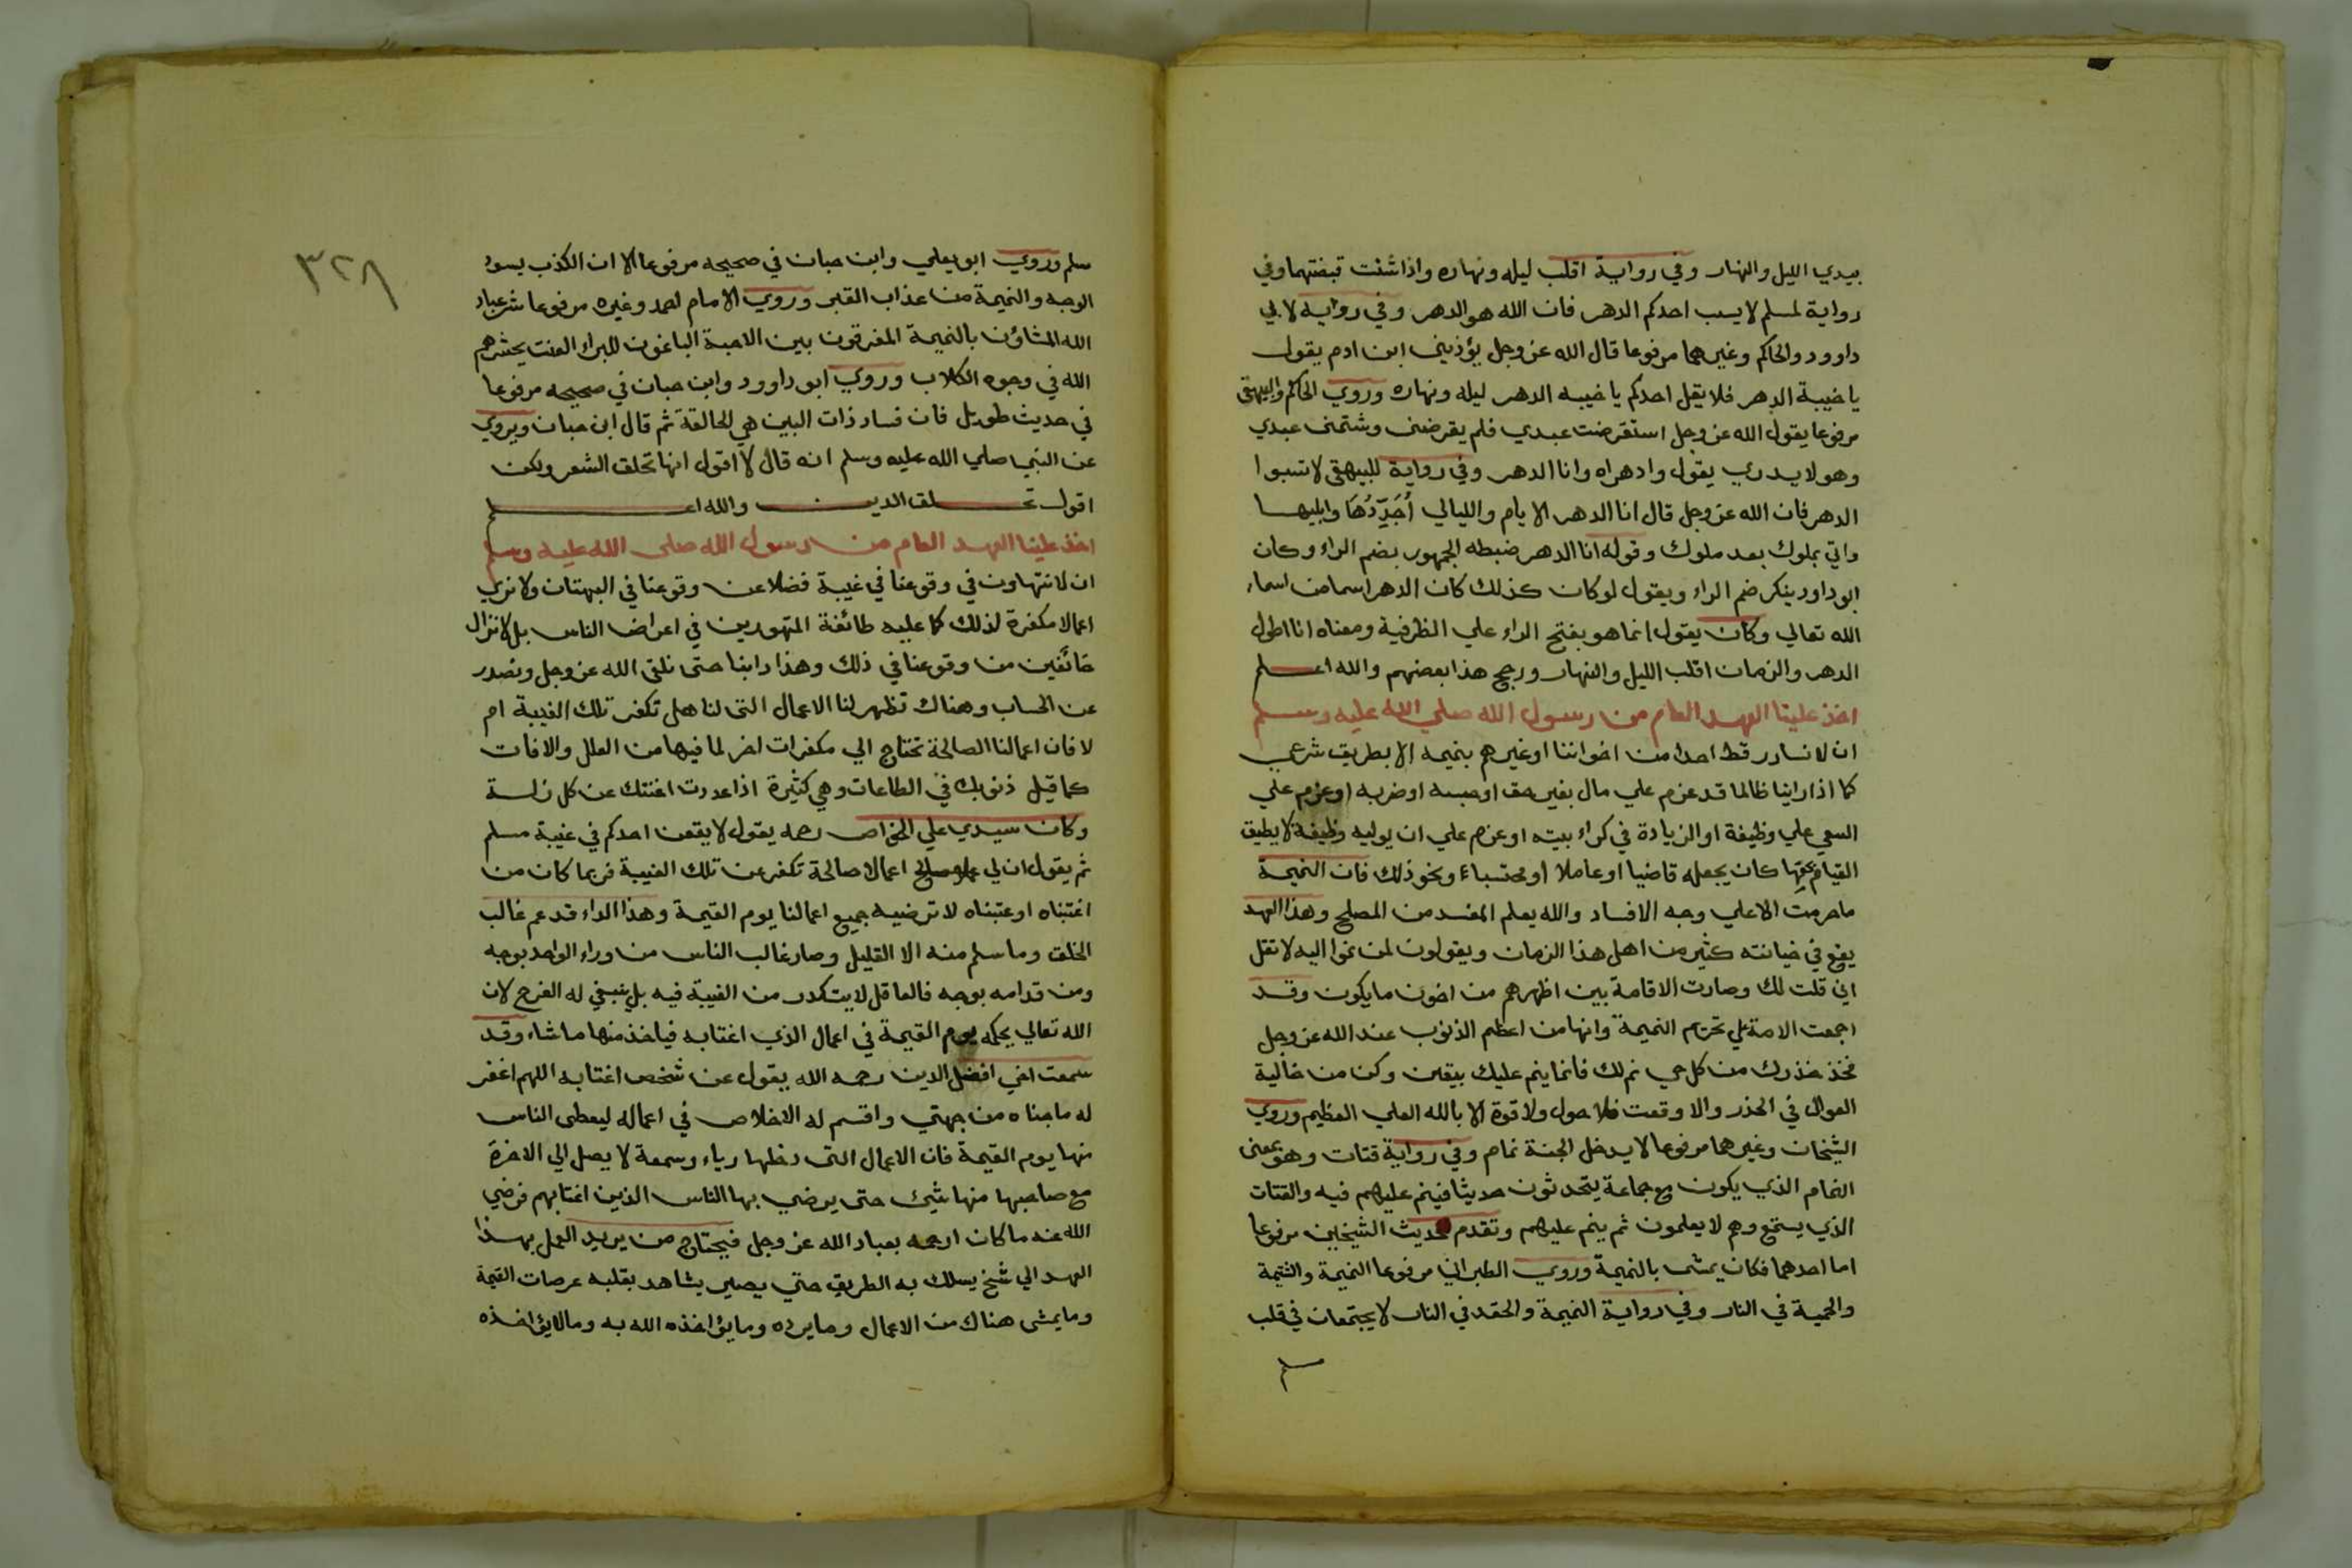 بيدي الليل والنهار وفي رواية اقلب ليله ونهاره واذا شئت قبضتهما وفي
رواية لمسلم لا يسب احدكم الدهر فان الله هو الدهر وفي رواية لابي
داوود والحاكم وغيرهما مرفوعا قال الله عز وجل يؤذيني ابن ادم يقول
يا خيبة الدهر فلا يقل احدكم يا خيبه الدهر ليله ونهاره وروي الحاكم والبيهقي
مرفوعا يقول الله عز وجل استقرضت عبدي فلم يقرضني وشتمني عبدي
وهو لا يدري يقول وادهراه وانا الدهر وفي رواية للبيهقي لا تسبوا
الدهر فان الله عز وجل قال انا الدهر الايام والليالي أُجَدِّدُهَا وابليها
واتي بملوك بعد ملوك وقوله انا الدهر ضبطه الجمهور بضم الراء وكان
ابو داود ينكر ضم الراء ويقول لو كان كذلك كان الدهر اسما من اسماء
الله تعالي وكان يقول انما هو بفتح الراء علي الظرفية ومعناه انا اطول
الدهر والزمان اقلب الليل والنهار ورجح هذا بعضهم والله اعلم
اخذ علينا العهد العام من رسول الله صلي الله عليه وسلم
ان لا نسارر قط احدا من اخواننا او غيرهم بنميمه الا بطريق شرعي
كما اذا راينا ظالما قد عزم علي مال بغير حق او حبسه او ضربه او عزم علي
السعي علي وظيفة او الزيادة في كراء بيته او عزم علي ان يوليه وظيفة لا يطيق
القيام بحقها كان يجعله قاضيا او عاملا او محتسباء ونحو ذلك فان النميمة
ما حرمت الا علي وجه الافساد والله يعلم المفسد من المصلح وهذا العهد
يقع في خيانته كثير من اهل هذا الزمان ويقولون لمن نموا اليه لا تقل
اني قلت لك وصارت الاقامة بين اظهرهم من اخون ما يكون وقد
اجمعت الامة علي تحريم النميمة وانها من اعظم الذنوب عند الله عز وجل
فخذ حذرك من كل من نم لك فانما ينم عليك بيقين وكن من خالية
العوال في الحذر والا وقعت فلا حول ولا قوة الا بالله العلي العظيم وروي
الشيخان وغيرهما مرفوعا لا يدخل الجنة نمام وفي رواية قتات وهو بمعنى
النمام الذي يكون مع جماعة يتحدثون حديثا فينم عليهم فيه والقتات
الذي يستمع وهم لا يعلمون ثم ينم عليهم وتقدم حديث الشيخين مرفوعا
اما احدهما فكان يمشي بالنميمة وروي الطبراني مرفوعا النميمة والشتيمة
والحمية في النار وفي رواية النميمة والحقد في النار لا يجتمعان في قلب
مسلم
٣٢٨
سلم وروي ابو يعلي وابن حبان في صحيحه مرفوعا الا ان الكذب يسود
الوجه والنميمة من عذاب القبر وروي الامام احمد وغيره مرفوعا شر عباد
الله المشاؤن بالنميمة المفرقون بين الاحبة الباغون للبراء العنت يحشرهم
الله في وجوه الكلاب وروي ابو داوود وابن حبان في صحيحه مرفوعا
في حديث طويل فان فساد ذات البين هي الحالقة ثم قال ابن حبان ويروي
عن النبي صلي الله عليه وسلم انه قال لا اقول انها تحلق الشعر ولكن
اقول تحلق الدين والله اعلم
اخذ علينا العهد العام من رسول الله صلى الله عليه وسلم
ان لا نتهاون في وقوعنا في غيبة فضلا عن وقوعنا في البهتان ولا نري
اعمالا مكفرة لذلك كما عليه طائفة المتهورين في اعراض الناس بل لا نزال
خائفين من وقوعنا في ذلك وهذا دابنا حتى نلقى الله عز وجل ونصدر
عن الحساب وهناك تظهر لنا الاعمال التي لنا هل تكفر تلك الغيبة ام
لا فان اعمالنا الصالحة تحتاج الي مكفرات اخر لما فيها من العلل والافات
كما قيل ذنوبك في الطاعات وهي كثيرة اذا عددت اغنتك عن كل زلة
وكان سيدي علي الخواص رحمه يقول لا يقعن احدكم في غيبة مسلم
ثم يقول ان لي اعمالا صالحة تكفر عن تلك الغيبة فربما كان من
اغتبناه او عتبناه لا ترضيه جميع اعمالنا يوم القيمة وهذا الداء قد عم غالب
الخلق وما سلم منه الا القليل وصار غالب الناس من وراء الواحد بوجه
ومن قدامه بوجه فالعاقل لا يتكدر من الغيبة فيه بل ينبغي له الفرح لان
الله تعالي يحكمه يوم القيمة في اعمال الذي اغتابه فياخذ منها ما شاء وقد
سمعت اخي افضل الدين رحمه الله يقول عن شخص اغتابه اللهم اغفر
له ما جناه من جهتي واقسم له الاخلاص في اعماله ليعطى الناس
منها يوم القيمة فان الاعمال التي دخلها رياء وسمعة لا يصل الي الاخرة
مع صاحبها منها شيئ حتى يرضي بها الناس الذين اغتابهم فرضي
الله عنه ما كان ارحمه بعباد الله عز وجل فيحتاج من يريد العمل بهذا
العهد الي شيخ يسلك به الطريق حتي يصير يشاهد بقلبه عرصات القيمة
وما يمشى هناك من الاعمال وما يرده وما يؤاخذه الله به وما لا يؤاخذه